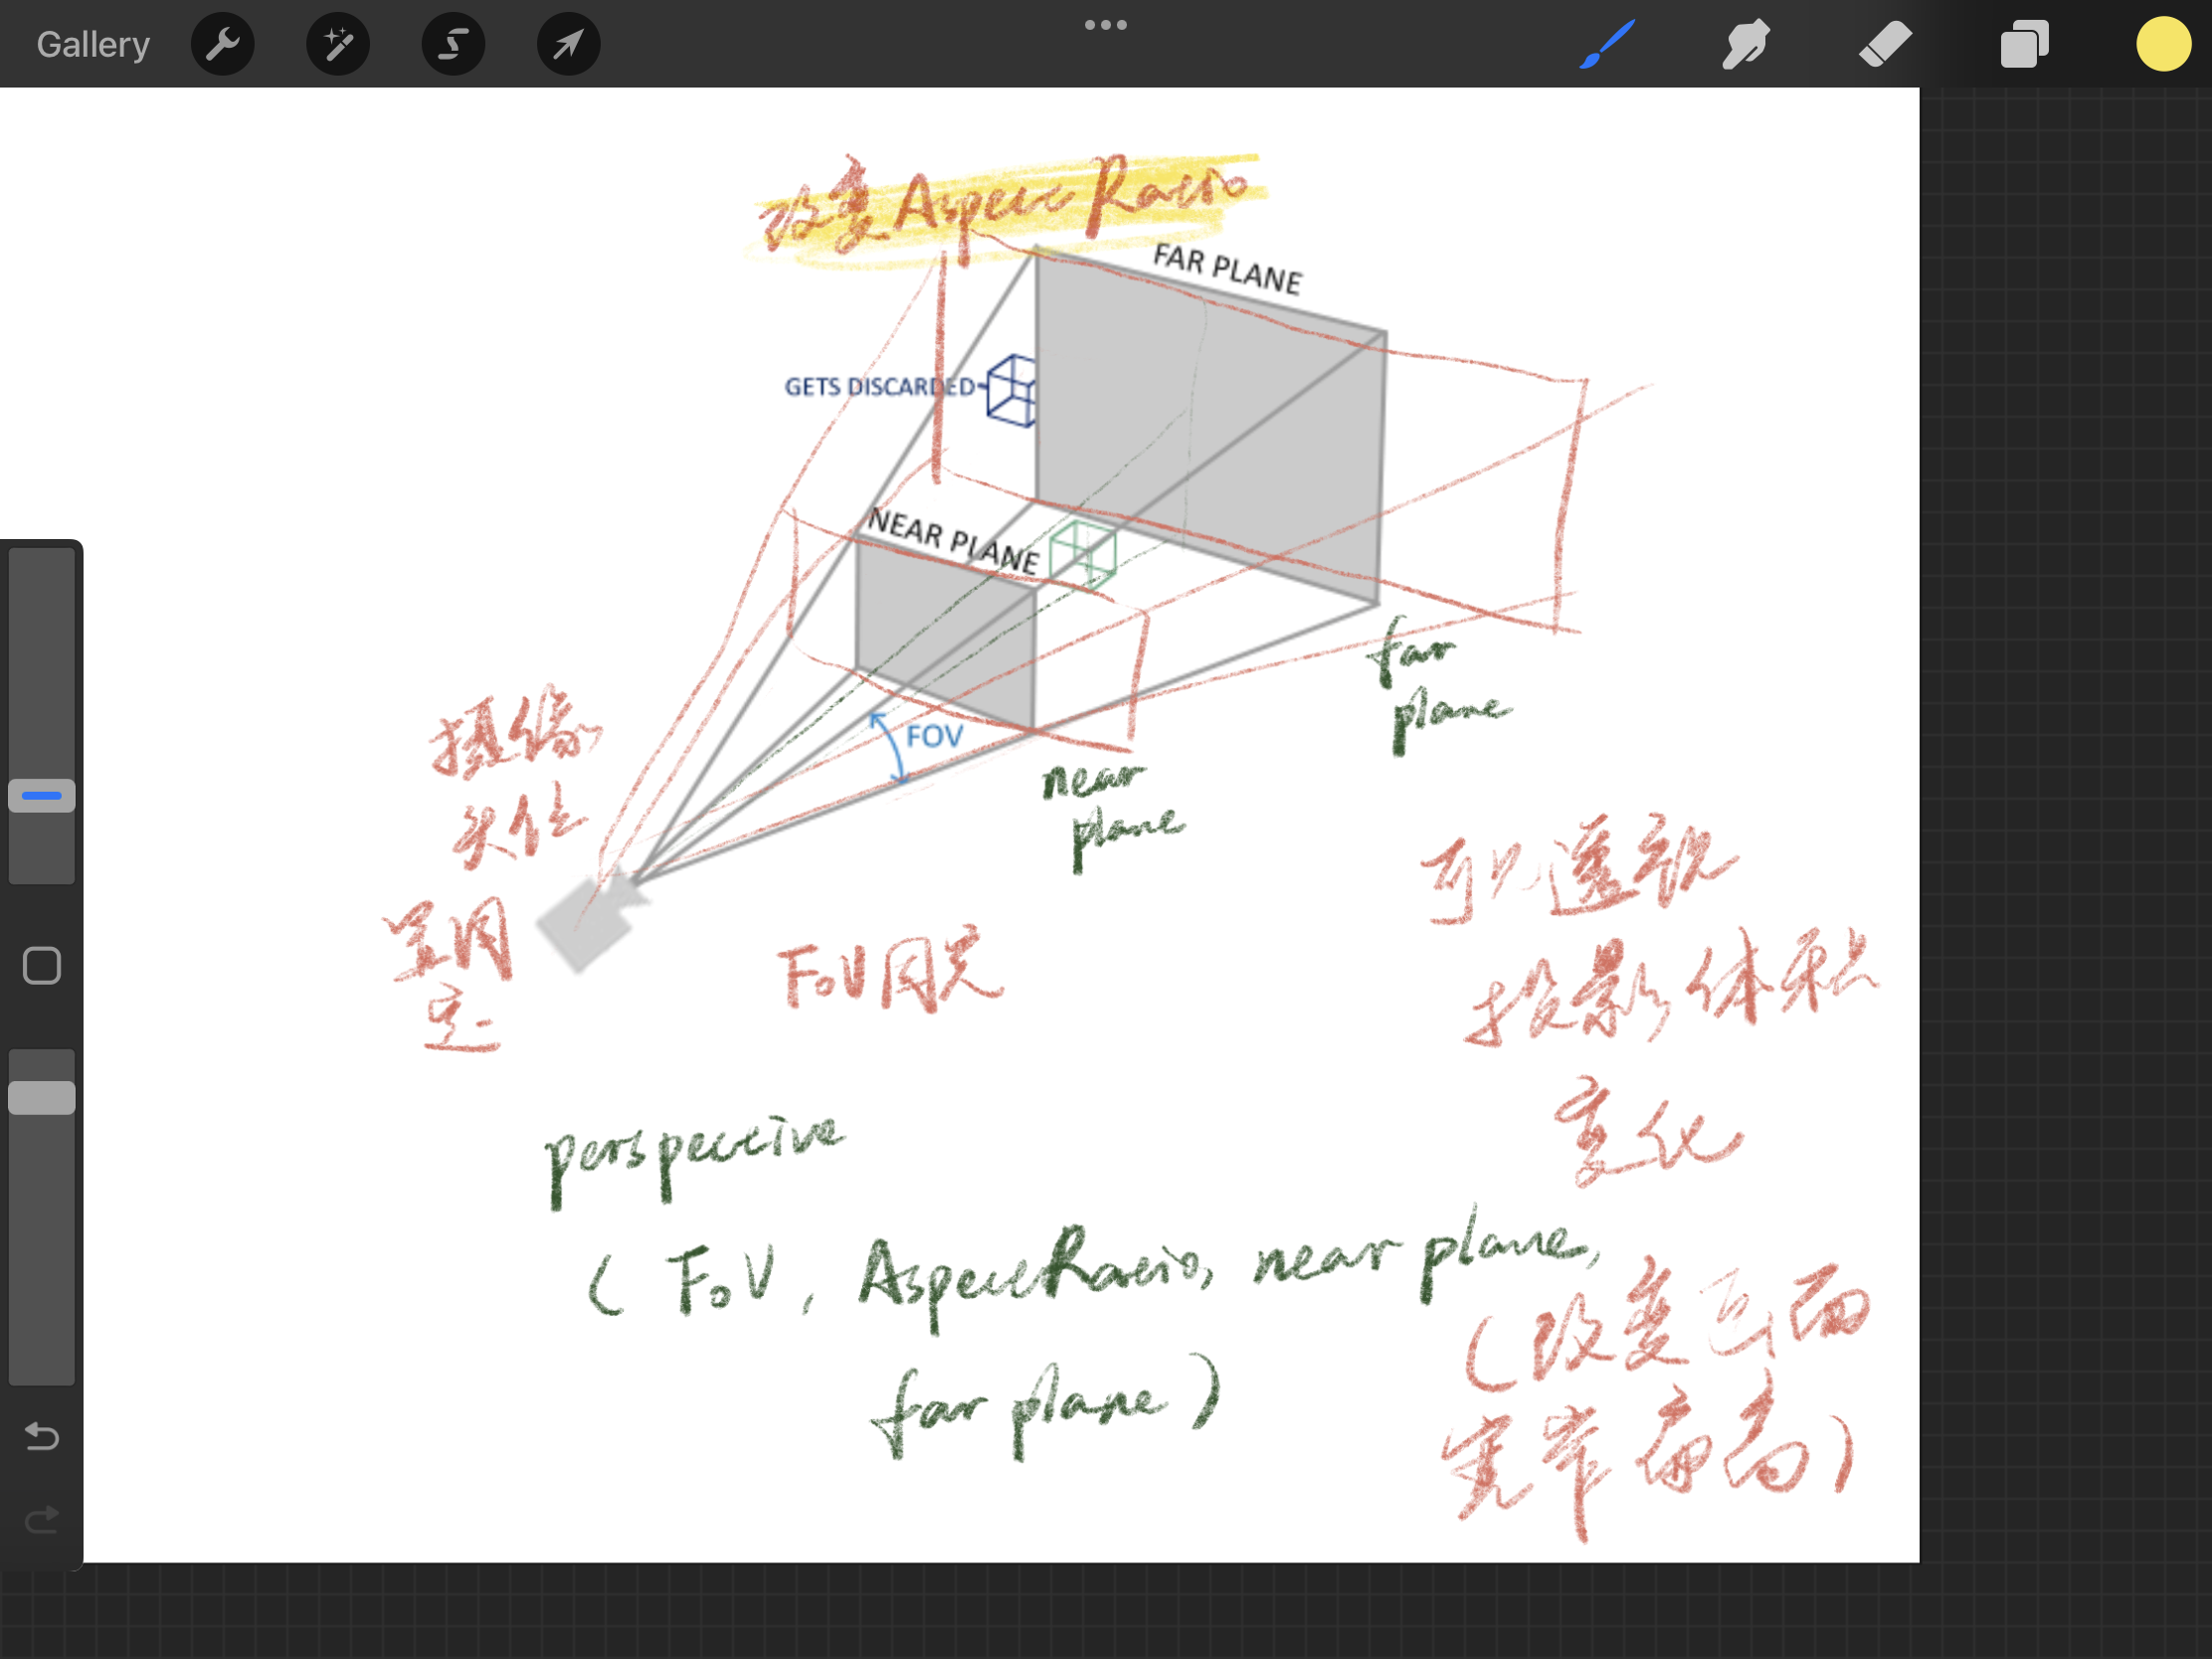 Gallery
改变 Aspect Ratio
FAR PLANE
GETS DISCARDED
NEAR PLANE
FOV
far
plane
near
plane
摄像
头位
置固
定
FoV固定
可以透视
投影体积
变化
perspective
( FoV, AspectRatio, near plane,
far plane )
(改变画面
宽窄